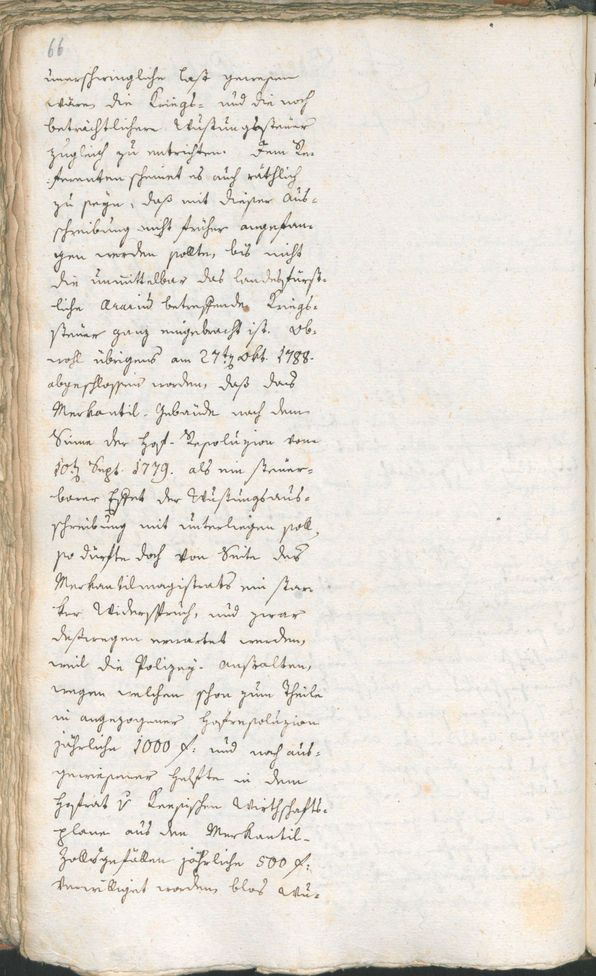 66
unerschwingliche Last gewesen
wäre, die Kriegs- und die noch
beträchtlichere Wustungssteuer
zugleich zu entrichten. Dem Re-
ferenten scheinet es auch räthlich
zu seyn, daß mit dieser Aus-
schreibung nicht früher angefan-
gen werden sollte, bis nicht
die unmittelbar das landesfürst-
liche Ararium betreffende Kriegs-
steuer ganz eingebracht ist. Ob-
wohl übrigens am 27ten Okt. 1788.
abgeschlossen worden, daß das
Merkantil-Gebäude nach dem
Sinne der Hof-Resoluzion vom
10ten Sept. 1779. als ein steuer-
barer Effekt der Wustungsaus-
schreibung mit unterliegen soll,
so dürfte doch von Seite des
Merkantilmagistrats ein star-
ker Widerspruch, und zwar
deswegen erwartet werden,
weil die Polizey-Anstalten,
wegen welchen schon zum Theile
in angezogener Hofresoluzion
jährliche 1000 f: und nach aus-
gewiesener Helfte in dem
Hofrat v Keesischen Wirthschafts-
plane aus den Merkantil-
Zollsgefällen jährliche 500 f:
verwilliget worden, blos Wu-